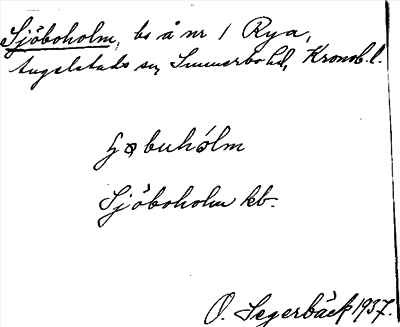 Sjöboholm, bs å nr 1 Rya,
Angelstads sn, Sunnerbo hd, Kronob. l.
buhólm
Sjöboholm kb.
O. Segerbäck 1937.